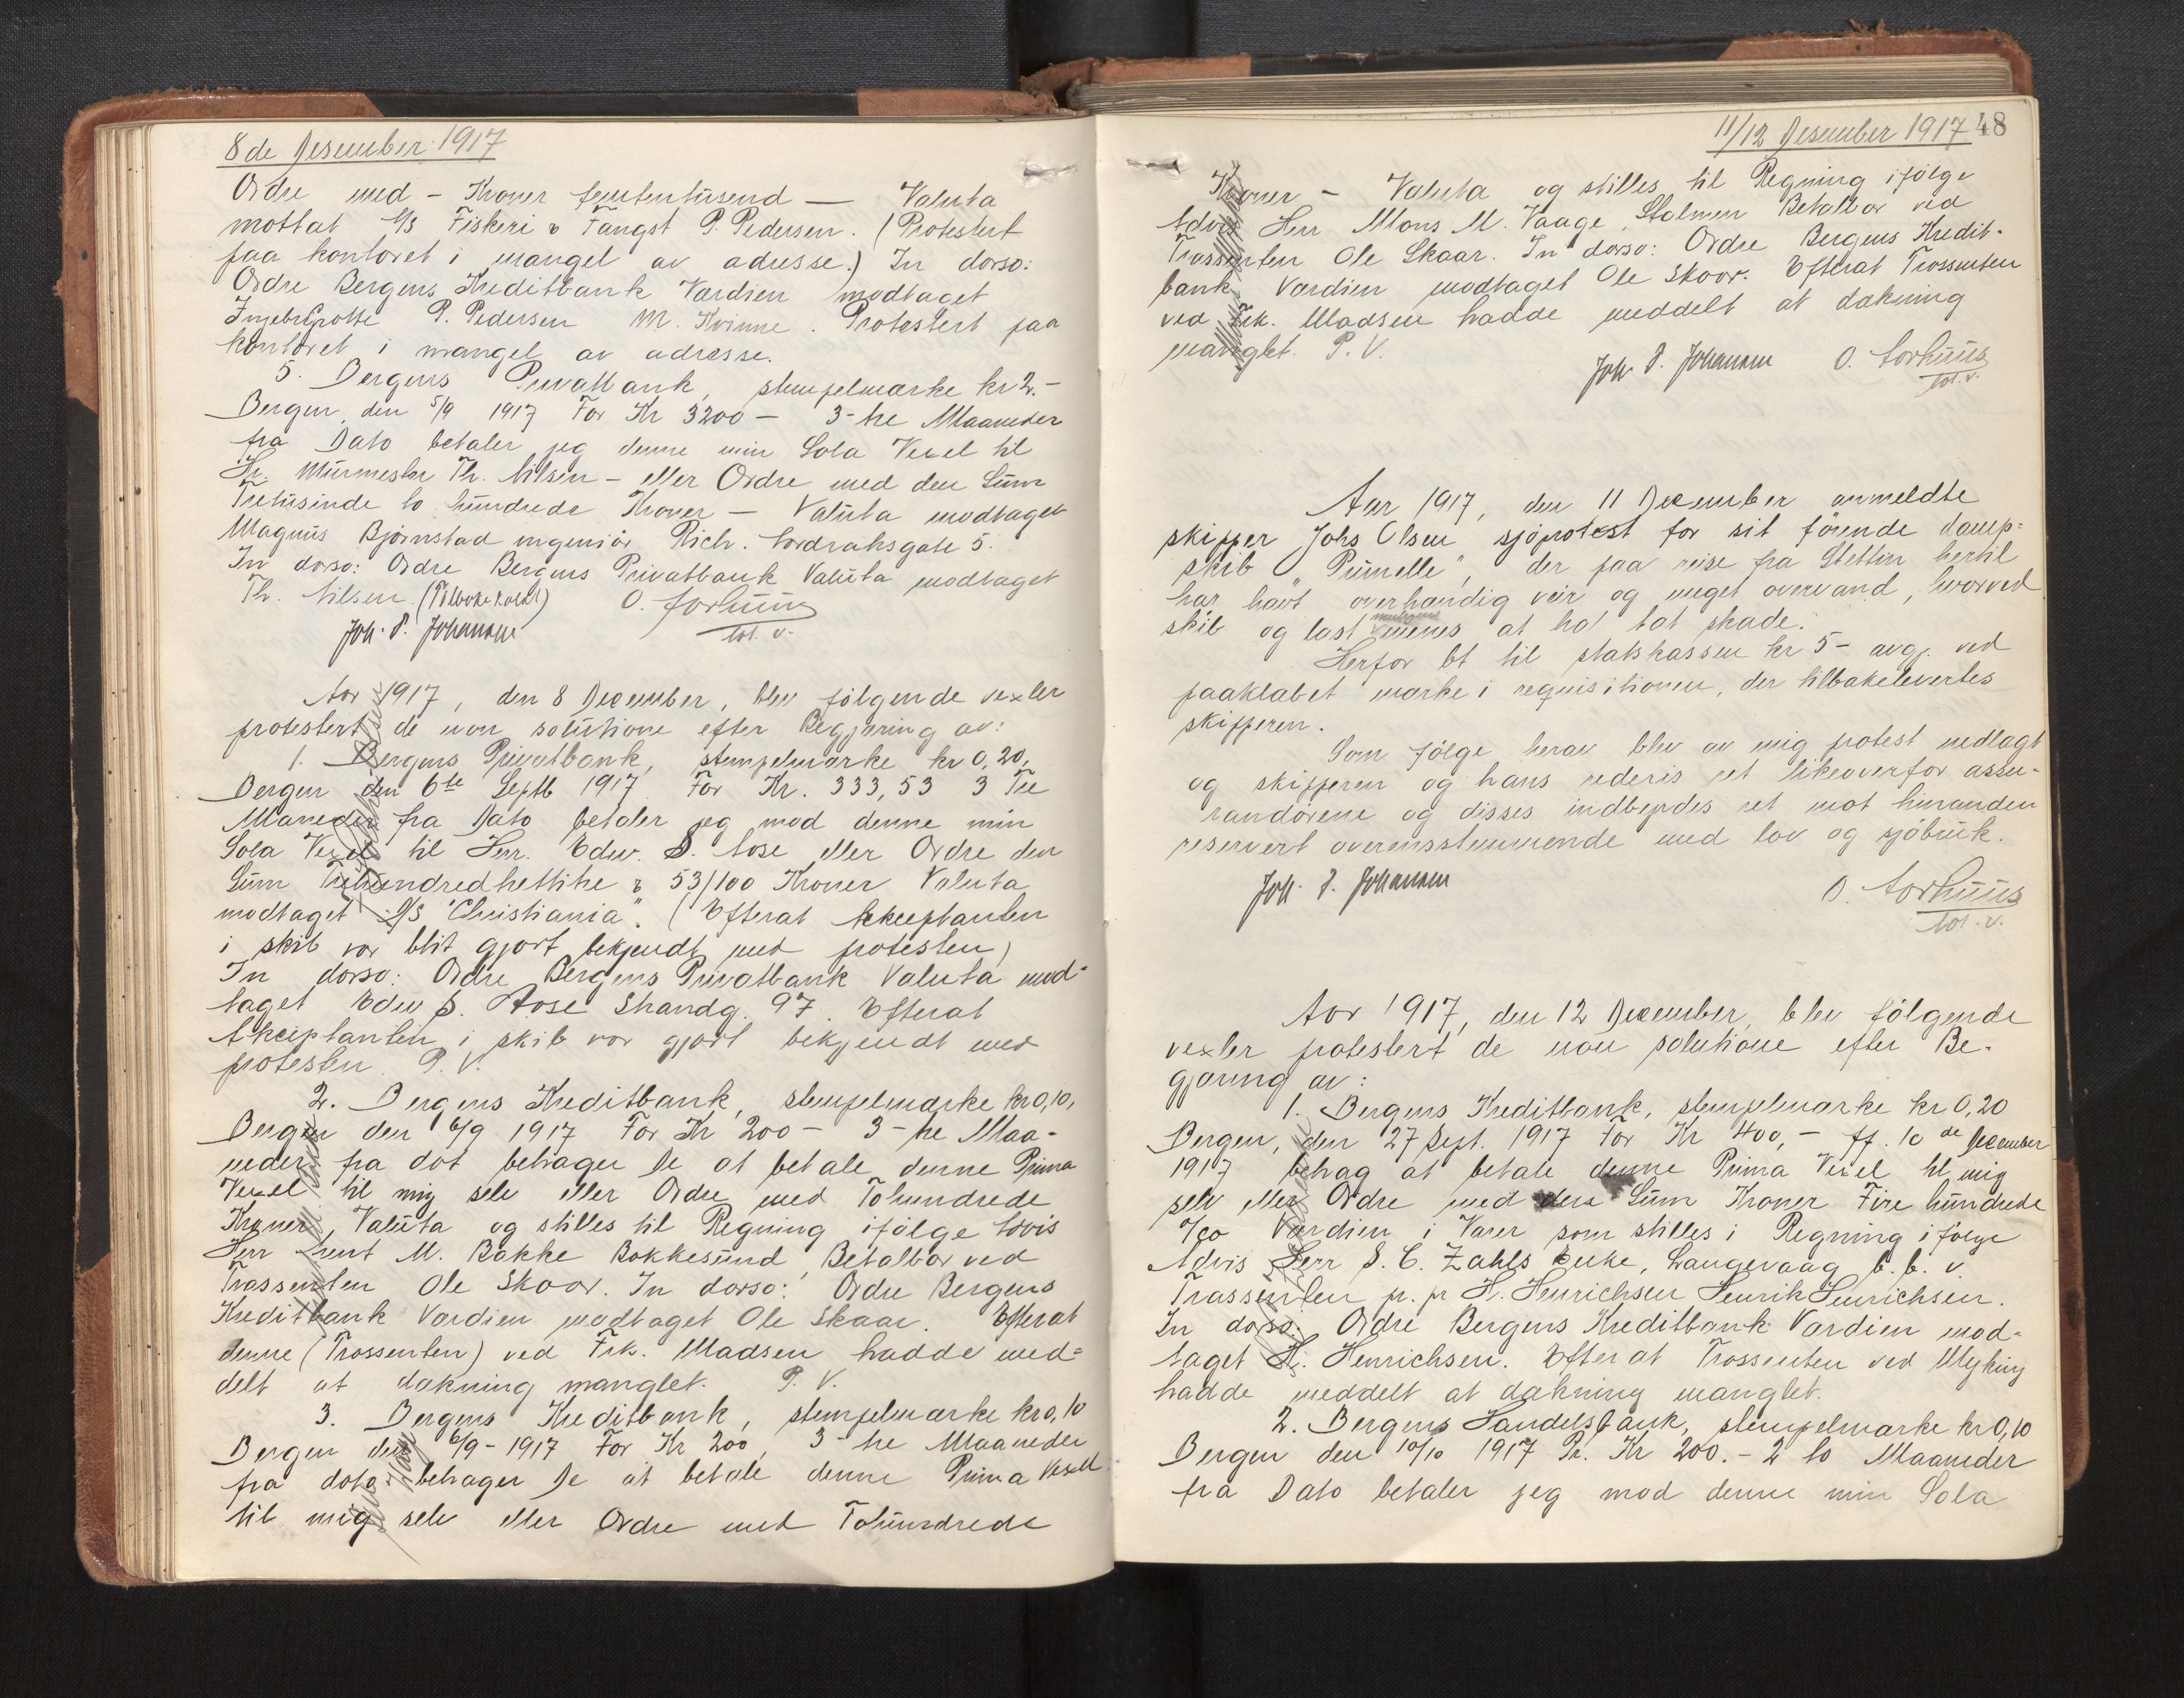 8de Desember 1917
Ordre med - Kroner femtentusend - Valuta
mottat A/S Fiskeri & Fangst P. Pedersen. (Protestert
paa kontoret i mangel av adresse.) In dorso:
Ordre Bergens Kreditbank Værdien modtaget
P. Pedersen M. Kvinne. Protestert paa
kontoret i mangel av adresse.
5. Bergens Privatbank, stempelmærke kr 2.-
Bergen, den 5/9 1917 For Kr 3200- 3-tre Maaneder
fra Dato betaler jeg denne min Sola Vexel til
Hr. Murmester Th. Nilsen - eller Ordre med den Sum
Tretusinde to hundrede Kroner - Valuta modtaget
Magnus Bjørnstad ingeniør Rich. Nordraksgate 5.
In dorso: Ordre Bergens Privatbank Valuta modtaget
Th. Nilsen
Joh. P. Johansen O. Aarhuus
Aar 1917, den 8 December, blev følgende vexler
protestert de non solutione efter Begjæring av:
1. Bergens Privatbank, stempelmærke kr 0,20,
Bergen den 6te Septb 1917 For Kr. 333,53 3 Tre
Maneder fra Dato betaler jeg mod denne min
Sola Vexel til Herr. Edw. B. Aase eller Ordre den
Sum Trehundredhettitre & 53/100 Kroner Valuta
modtaget D/S "Christiania". (Efterat Akceptanten
i skib var blit gjort bekjendt med protesten)
In dorso: Ordre Bergens Privatbank Valuta mod-
taget Edw B. Aase Strandg. 97. Efterat
Akceptanten i skib var gjort bekjendt med
protesten. P. V.
2. Bergens Kreditbank, stempelmærke kr 0,10,
Bergen den 6/9 1917 For Kr 200- 3-tre Maa-
neder fra dat behager De at betale denne Prima
Vexel til mig selv eller Ordre med Tohundrede
Kroner, Valuta og stilles til Regning ifølge Advis
Herr M. Bakke Bakkesund, Betalbar ved
Trassenten Ole Skaar. In dorso: Ordre Bergens
Kreditbank Værdien modtaget Ole Skaar. Efterat
denne (Trassenten) ved Frk. Madsen hadde med-
delt at dækning manglet. P. V.
3. Bergens Kreditbank, stempelmærke kr 0,10
Bergen den 6/9 - 1917 For Kr 200, 3-tre Maaneder
fra dato behager De at betale denne Prima Vexel
til mig selv eller Ordre med Tohundrede
11/12 Desember 1917 48
Kroner - Valuta og stilles til Regning ifølge
Advis Herr Mons M. Vaage, Stolmen Betalbar ved
Trassenten Ole Skaar. In dorso: Ordre Bergens Kredit-
bank Værdien modtaget Ole Skaar. Efterat Trassenten
ved Frk. Madsen hadde meddelt at dækning
manglet. P. V.
Joh P. Johansen O. Aarhuus
Aar 1917, den 11 December anmeldte
skipper Johs Olsen sjøprotest for sit førende damp-
skib "Prunelle", der paa reise fra Stettin hertil
har havt overhændig veir og meget overvand, hvorved
skib og last menes at ha tat skade.
Herfor bt til statskassen kr 5- avgj. ved
paaklæbet mærke i requisitionen, der tilbakelevertes
skipperen.
Som følge herav blev av mig protest nedlagt
og skipperen og hans rederis ret likeoverfor assu-
randørene og disses indbyrdes ret mot hinanden
reservert overensstemmende med lov og sjøbruk.
Joh. P. Johansen O. Aarhuus
Aar 1917, den 12 December, blev følgende
vexler protestert de non solutione efter Be-
gjæring av:
1. Bergens Kreditbank, stempelmærke kr 0,20
Bergen, den 27 Sept. 1917 For Kr 400,- ff. 10de December
1917 behag at betale denne Prima Vexel til mig
selv eller Ordre med den Sum Kroner Fire hundrede
Værdien i Varer som stilles i Regning ifølge
Advis Herr S. C. Zahls Enke, Langevaag b. b. v.
Trassenten pr. pr H. Henrichsen Henrik Henrichsen.
In dorso: Ordre Bergens Kreditbank Værdien mod-
taget H. Henrichsen. Efterat Trassenten ved Myking
hadde meddelt at dækning manglet.
2. Bergens Handelsbank, stempelmærke kr 0,10
Bergen den 10/10 1917 Pr. Kr 200.- 2 to Maaneder
fra Dato betaler jeg mod denne min Sola